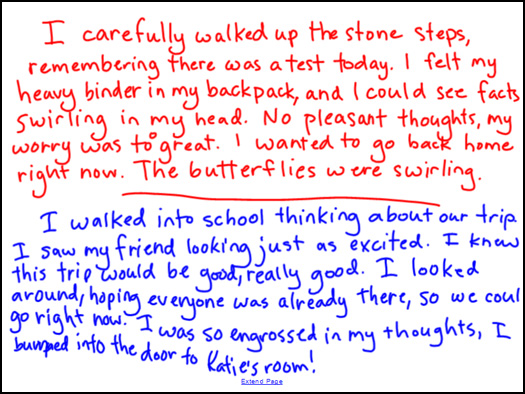 I carefully walked up the stone steps,
remembering there was a test today. I felt my
heavy binder in my backpack, and I could see facts
swirling in my head. No pleasant thoughts, my
worry was too great. I wanted to go back home
right now. The butterflies were swirling.
I walked into school thinking about our trip.
I saw my friend looking just as excited. I knew
this trip would be good, really good. I looked
around, hoping everyone was already there, so we coul
go right now. I was so engrossed in my thoughts, I
bumped into the door to Katie's room!
Extend Page